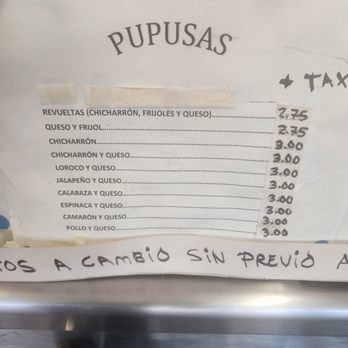 PUPUSAS
+ TAX
REVUELTAS (CHICHARRÓN, FRIJOLES Y QUESO)........ 2.75
QUESO Y FRIJOL........ 2.75
CHICHARRÓN........ 3.00
CHICHARRÓN Y QUESO........ 3.00
LOROCO Y QUESO........ 3.00
JALAPEÑO Y QUESO........ 3.00
CALABAZA Y QUESO........ 3.00
ESPINACA Y QUESO........ 3.00
CAMARÓN Y QUESO........ 3.00
POLLO Y QUESO........ 3.00
TOS A CAMBIO SIN PREVIO A